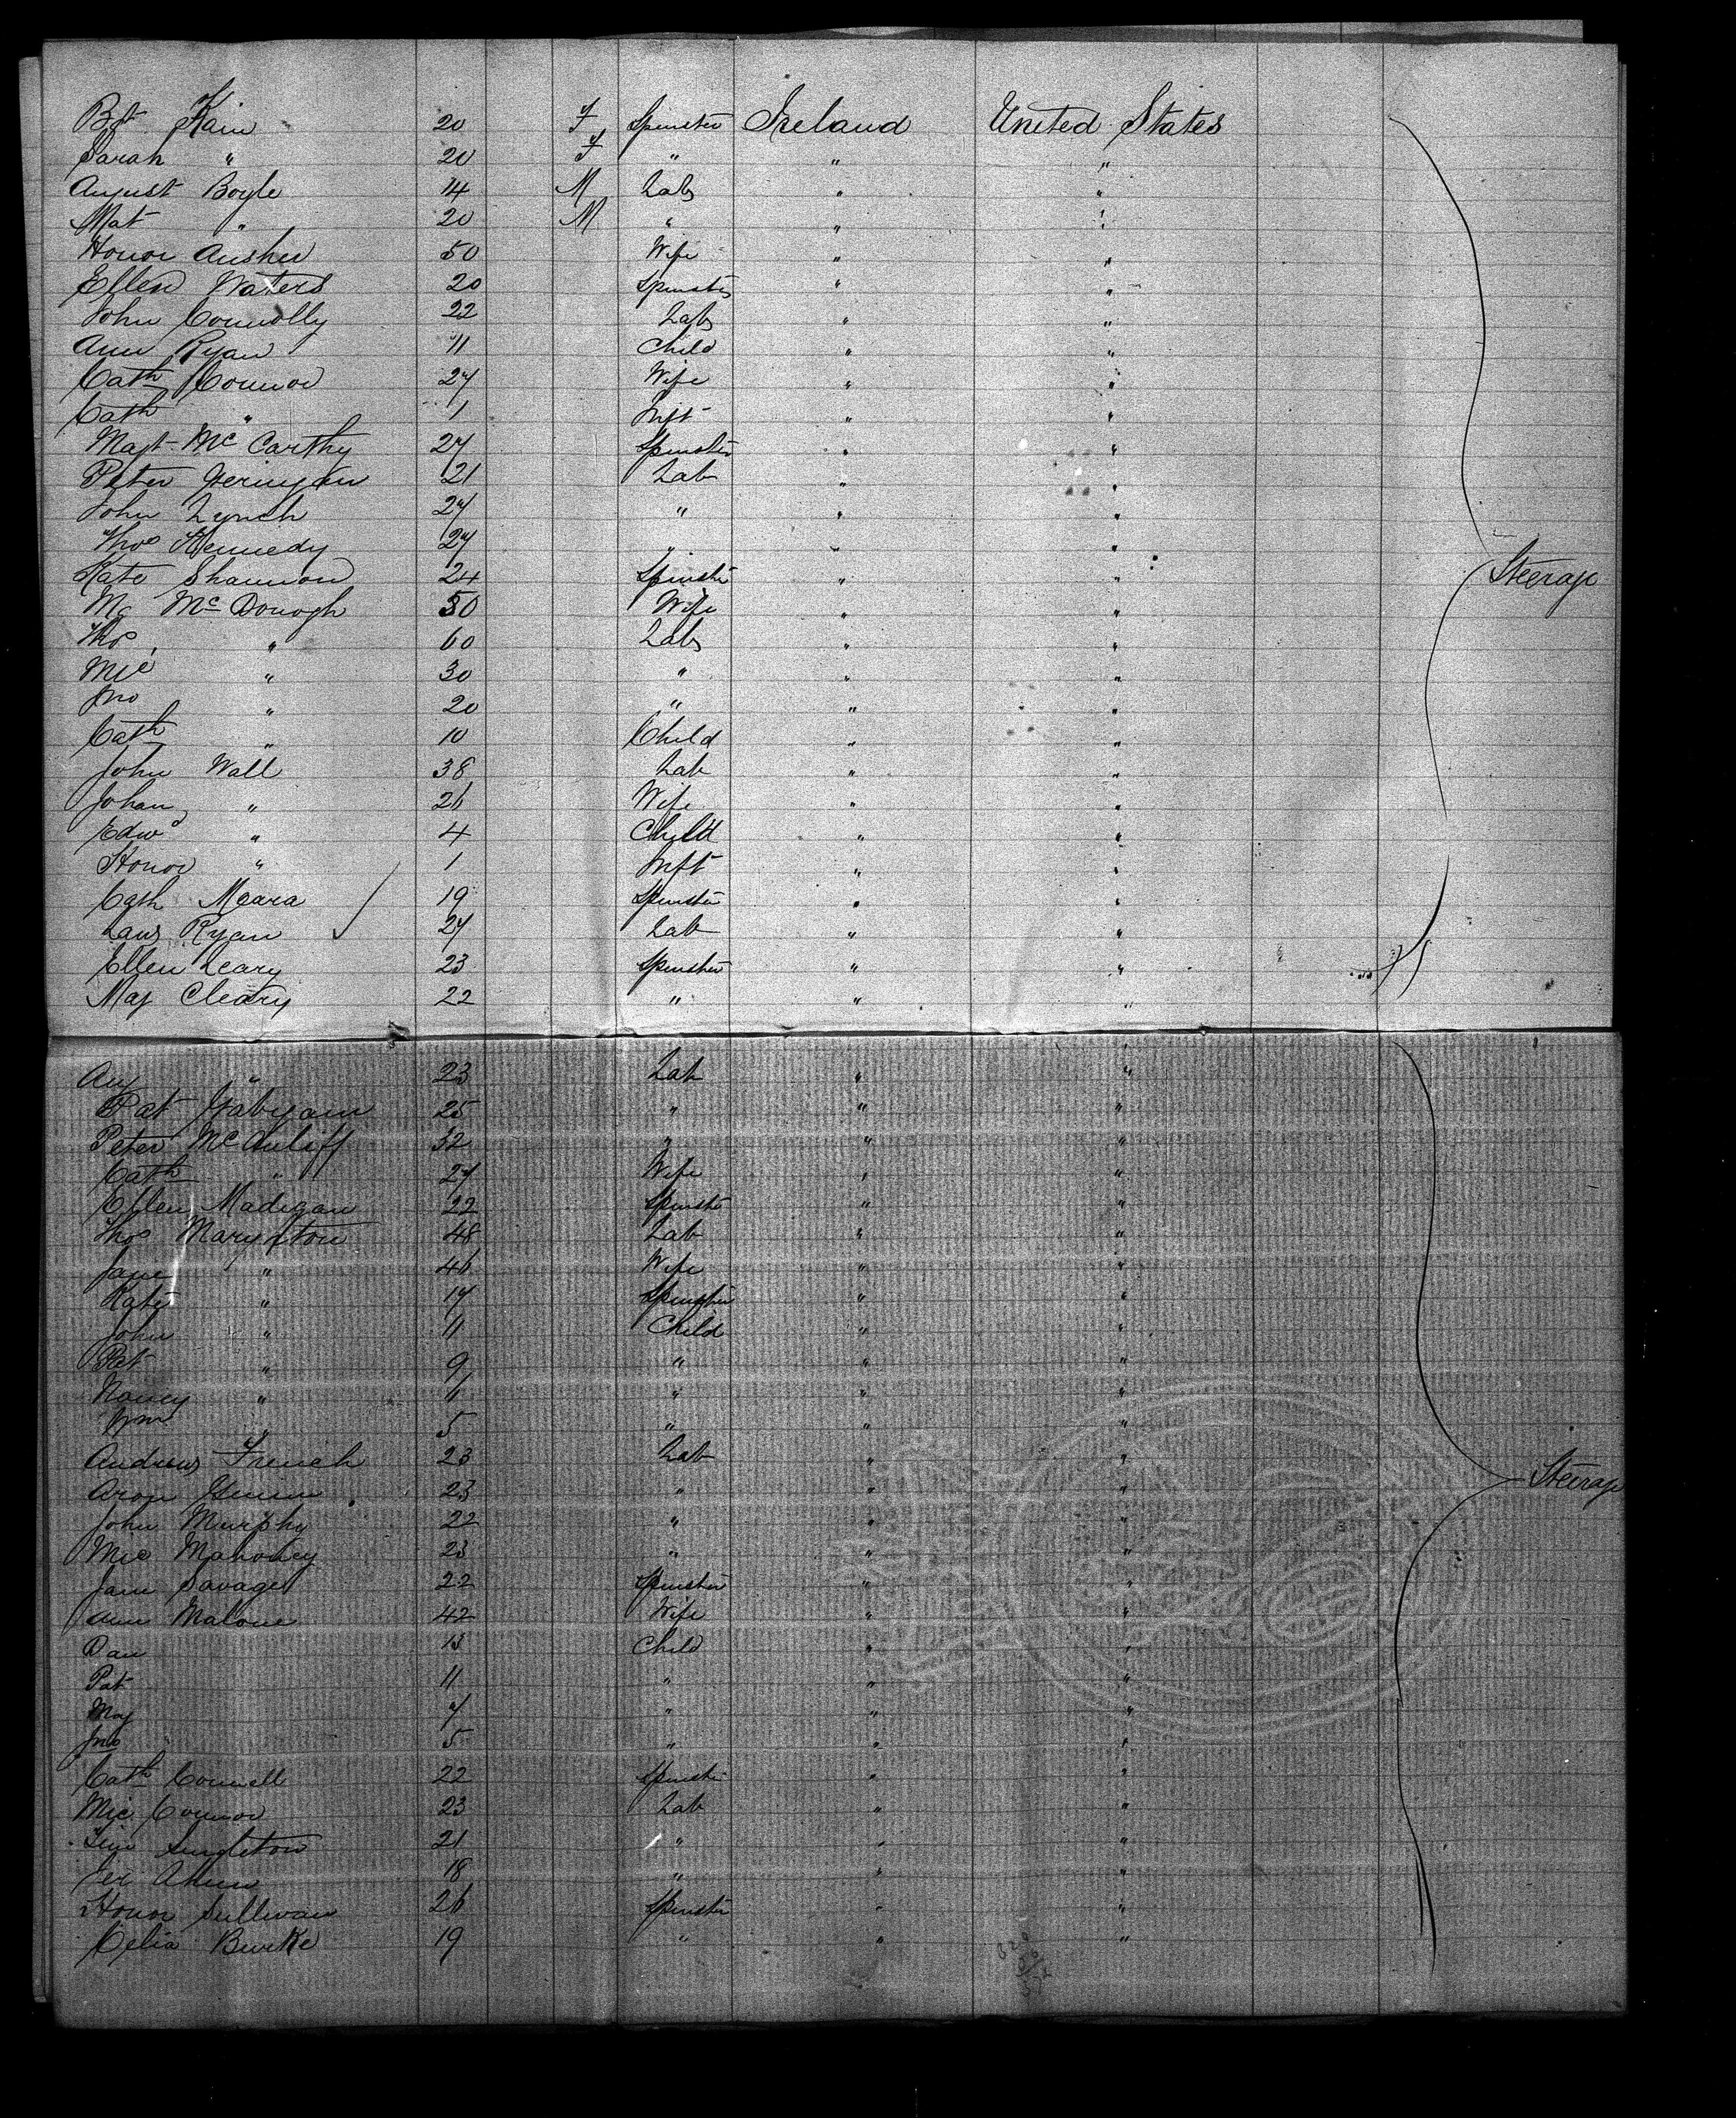 Bgt Kain 20 F Spinster Ireland United States
Sarah " 20 F " " "
August Boyle 14 M Lab " "
Mat " 20 M " " "
Honor Ausher 50 Wife " "
Ellen Waters 20 Spinster " "
John Connolly 22 Lab " "
Ann Ryan 11 Child " "
Cath Connor 27 Wife " "
Cath " 1 Inft " "
Magt Mc Carthy 27 Spinster " "
Peter 21 Lab " "
John Lynch 27 " " "
Thos Kennedy 27 " " "
Kate Shannon 24 Spinster " " Steerage
Mc Donogh 50 Wife " "
Thos " 60 Lab " "
Mic " 30 " " "
Jno " 20 " " "
Cath " 10 Child " "
John Wall 38 Lab " "
Johan " 26 Wife " "
Edwd " 4 Child " "
Honor " 1 Inft " "
Cath Meara 19 Spinster " "
Laws Ryan 27 Lab " "
Ellen Leary 23 Spinster " "
May Cleary 22 " " "
" 23 Lab " "
Pat 25 " " "
Peter Mc Auliff 32 " " "
Cath " 27 Wife " "
Ellen Madigan 22 Spinster " "
Thos 48 Lab " "
Jane " 46 Wife " "
Kate " 17 Spinster " "
John " 11 Child " "
Pat " 9 " " "
Nancy " 6 " " "
Wm " 5 " " "
Andrew French 23 Lab " "
23 " " " Steerage
John Murphy 22 " " "
Mic Mahoney 23 " " "
Jane Savage 22 Spinster " "
Ann Malone 42 Wife " "
Dan 13 Child " "
Pat 11 " " "
May 7 " " "
Jno 5 " " "
Cath Connell 22 Spinster " "
Mic Connor 23 Lab " "
Singleton 21 " " "
Jer Ahern 18 " " "
Honor Sullivan 26 Spinster " "
Celia Burke 19 " " "